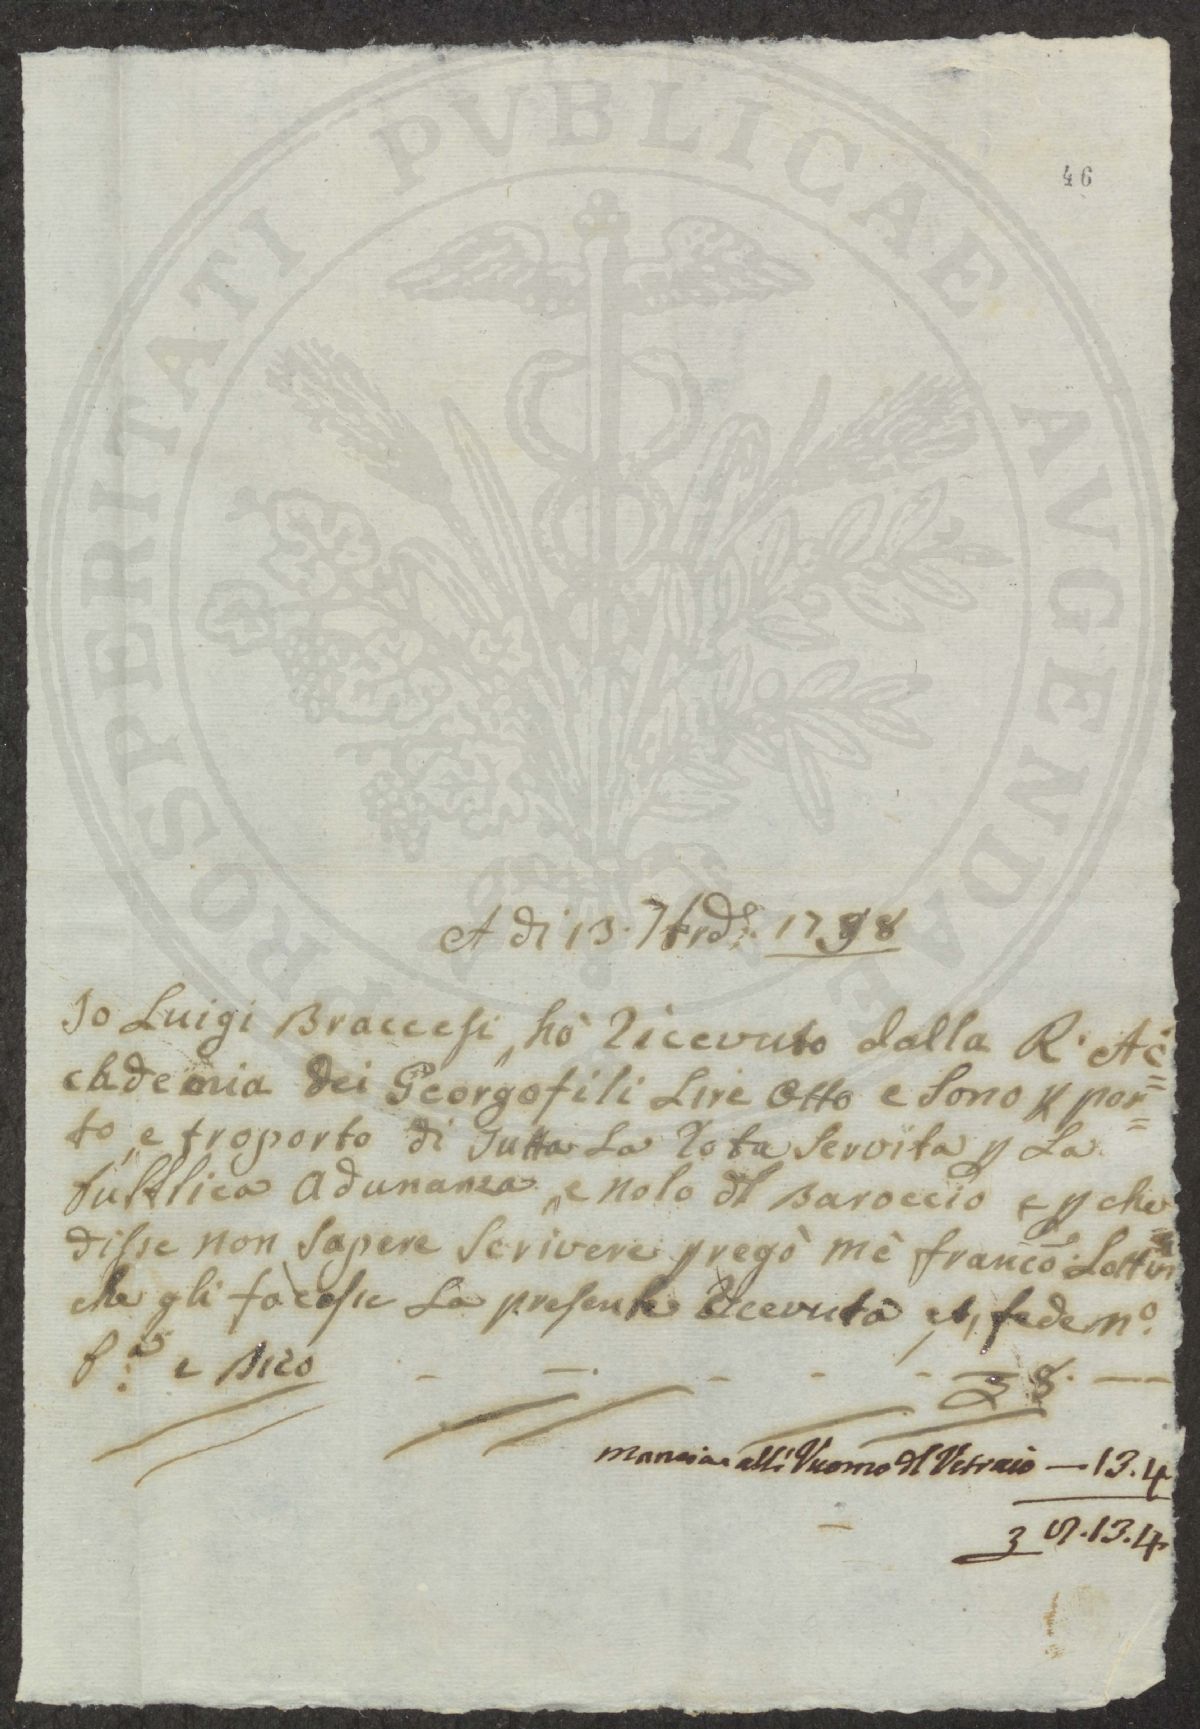 PROSPERITATI PVBLICAE AVGENDAE
46
A di 13. 7brē: 1788
Io Luigi Braccesi hò Ricevuto dalla R. Ac=
cademia dei Georgofili Lire Otto e Sono p por=
to, e troporto di Tutta La Rota Servita p La
Pubblica Adunanza e nolo dl Baroccio e p che
disse non Sapere Scrivere pregò mè Franco: Lottini
che gli facesse La presente Ricevuta et, fede Mo.
Pa: e Dico - - - - - £ 8. -
mancia all' Vuomo dl Vetraio — 13.4
£ 8.13.4